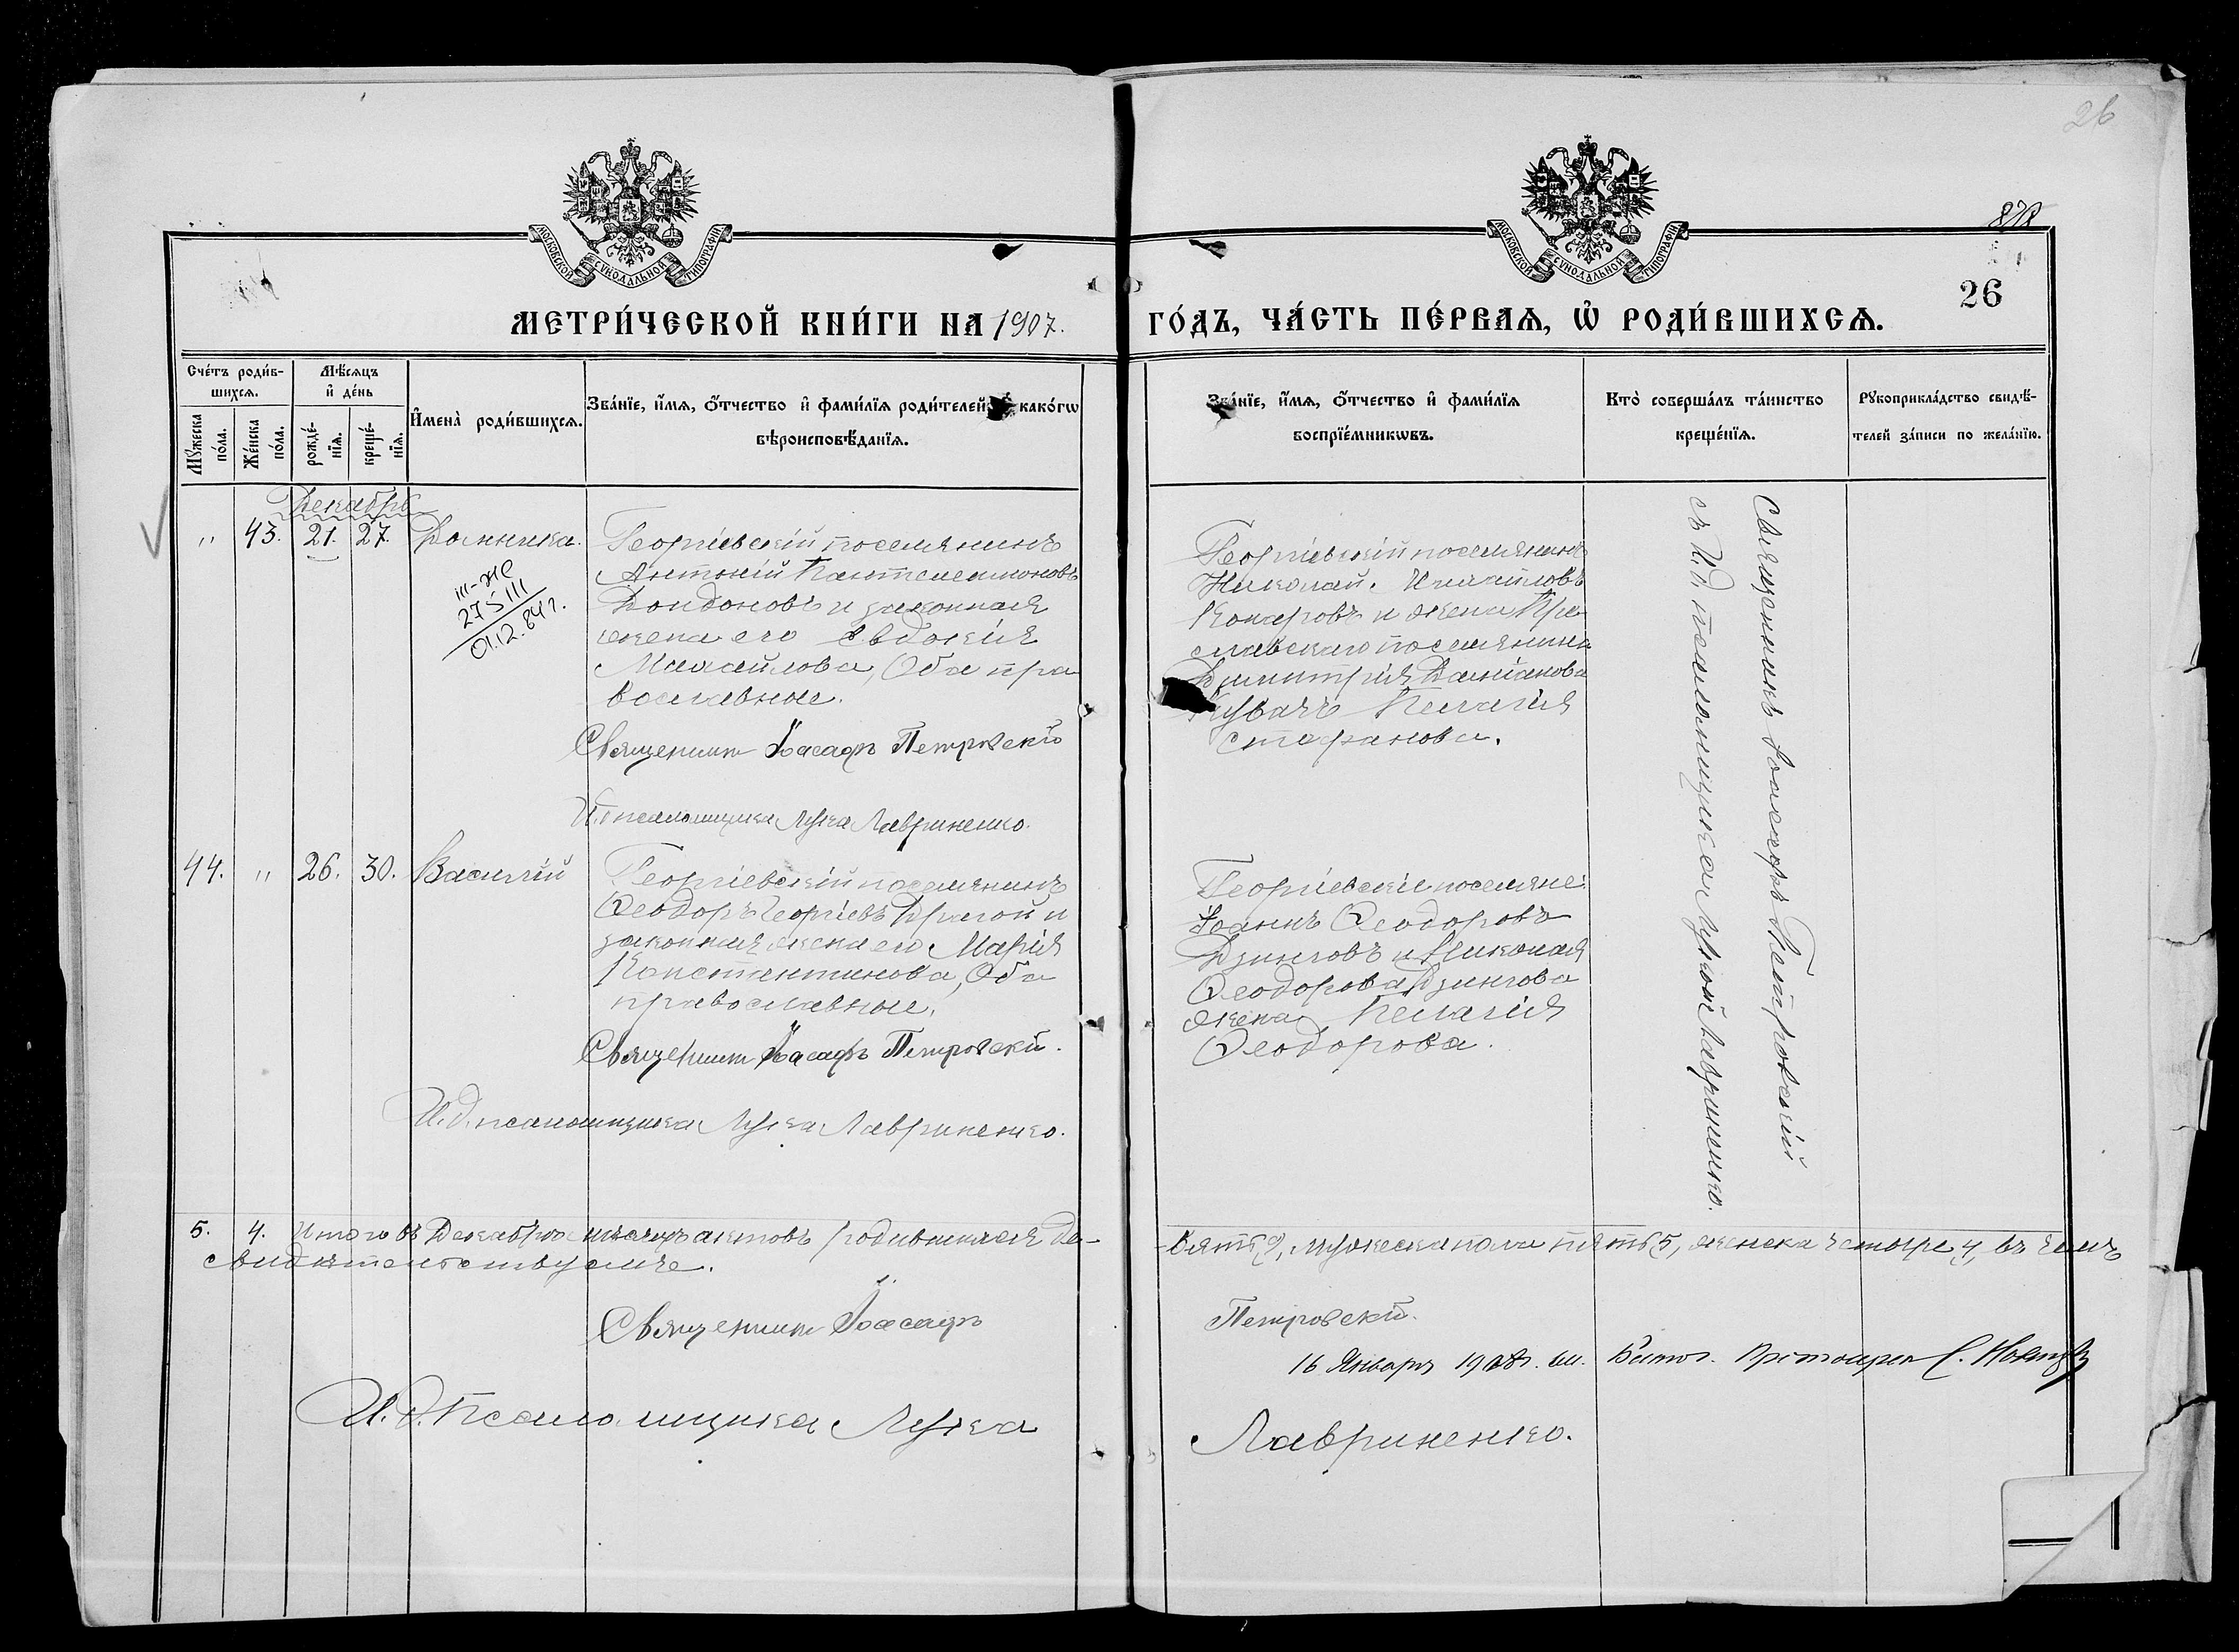 26
872
МОСКОВСКОЙ СУНОДАЛЬНОЙ ТИПОГРАФІИ
МОСКОВСКОЙ СУНОДАЛЬНОЙ ТИПОГРАФІИ
26
МЕТРИ́ЧЕСКОЙ КНИ́ГИ НА 1907.
ГО́ДЪ, ЧА́СТЬ ПЕ́РВАѦ, Ѽ РОДИ́ВШИХСѦ.
Сче́тъ роди́в-
шихсѧ.
Мꙋжеска по́ла.
Же́нска по́ла.
Мѣ́сѧцъ
и҆ де́нь
рожде́-
нїѧ.
креще́-
нїѧ.
И҆мена̀ роди́вшихсѧ.
Зва́нїе, и҆́мѧ, ѻ҆́тчество и҆ фами́лїѧ роди́телей, како́гѡ
вѣроисповѣ́данїѧ.
Зва́нїе, и҆́мѧ, ѻ҆́тчество и҆ фами́лїѧ
воспрїе́мникѡвъ.
Кто̀ соверша́лъ та́инство
креще́нїѧ.
Рꙋкоприкла́дство свидѣ́-
телей за́писи по жела́нїю.
Декабрь
" 43. 21. 27. Домника.
III-ЖС
275111
01.12.84г.
Георгіевскій поселянинъ
Антоній Пантелеимоновъ
Дондоновъ и законная
жена его Евдокія
Михайлова, Оба пра
вославные.
Священникъ Іоасафъ Петровскій
И. д. псаломщика Лука Лавриненко.
Георгіевскій поселянинъ
Николай Михайловъ
и жена Пре
славскаго поселянина
Димитрія Даміанова
Кувачъ Пелагія
Стефанова.
Священникъ Іоасафъ Петровскій
съ И. д. псаломщика Лукой Лавриненко.
44. " 26. 30. Василій
Георгіевскій поселянинъ
Ѳеодоръ Георгіевъ Драгой и
законная жена его Марія
Константинова, Оба
православные.
Священникъ Іоасафъ Петровскій.
И. д. псаломщика Лука Лавриненко.
Георгіевскіе поселяне:
Іоаннъ Ѳеодоровъ
Дзинговъ и Николая
Ѳеодорова Дзингова
жена Пелагія
Ѳеодорова.
5. 4. Итого въ Декабрѣ мѣсяцѣ актовъ родившихся де-
-вять 9, мужеска пола пять 5, женска четыре 4, въ чемъ
свидѣтельствуемъ.
Священникъ Іоасафъ
Петровскій.
16 Января 1908г.
И. д. Псаломщика Лука
Лавриненко.